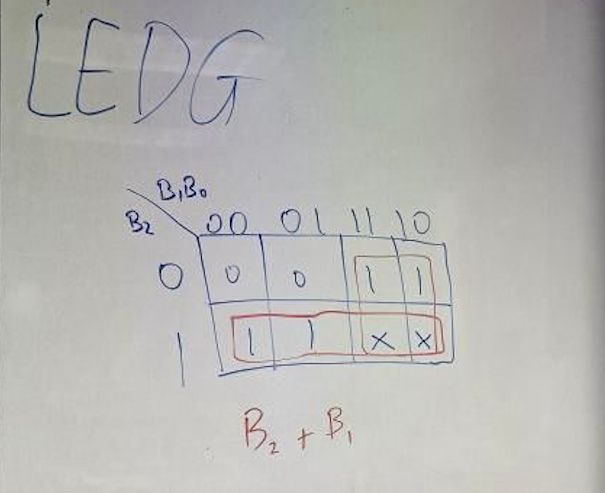 LEDG
B₁B₀
B₂ 00 01 11 10
0 0 0 1 1
1 1 1 X X
B₂ + B₁